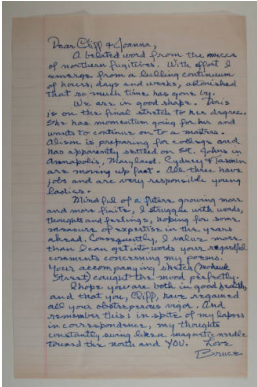 Dear Cliff & Joanna,
A belated word from the mecca
of northern fugitives. With effort I
emerge from a lulling continuum
of hours, days and weeks, astonished
that so much time has gone by.
We are in good shape. Doris
is on the final stretch to her degree.
She has momentum going for her and
wants to continue on to a masters.
Alison is preparing for college and
has apparently settled on St. Johns in
Annapolis, Maryland. Cydney & Tasmin
are moving up fast. All three have
jobs and are very responsible young
ladies.
Mindful of a future growing more
and more finite, I struggle with words,
thoughts and feelings, hoping for some
measure of expertise in the years
ahead. Consequently, I value more
than I can get into words your
comments concerning my poems.
Your accompanying sketch (Mohawk
Street) caught the mood perfectly.
I hope you are both in good health
and that you, Cliff, have regained
all your obstreperous vigor. And
remember this: in spite of my lapses
in correspondence, my thoughts
constantly swing like a magnetic needle
toward the north and YOU. Love
Bruce